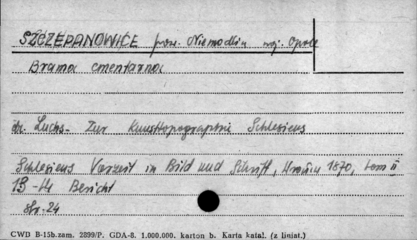 SZCZEPANOWICE pow. Niemodlin woj. Opole
Brama cmentarna
dr. Luchs - Zur Kunsttopographie Schlesiens
Schlesiens Vorzeit in Bild und Schrift, 1870, tom II
13-14 Bericht
str. 24
CWD B-15b.zam. 2899/P. GDA-8. 1.000.000. karton b. Karta katal. (z liniat.)